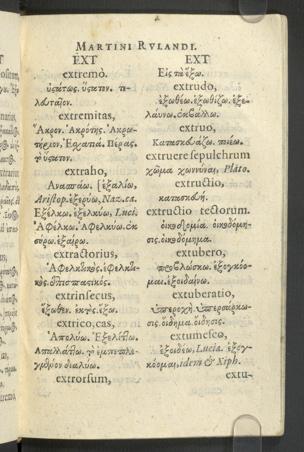 MARTINI RVLANDI.
EXT
extremò.
extremitas,
Ἄκρον. Ἀκρότης. Ἀκρω-
τήριον. Ἐσχατιά. Πέρας.
extraho,
Ἀνασπάω. ἐξαλίω,
Aristop. ἐξερύω, Naz. ca.
Ἐξέλκω. ἐξελκύω, Luci.
Ἀφέλκω. Ἀφελκύω. ἐκ
σύρω. ἐξαίρω.
extractorius,
Ἀφελκυικὸς. ἐφελκυι-
κὸς. ἀποσπαστικός.
extrinsecus,
ἔξωθεν. ἐκτὸς. ἔξω.
extrico, cas,
Ἀπολύω. Ἐξελίττω.
extrorsum,
EXT
Εἰς τὸ ἔξω.
extrudo,
ἐξωθέω. ἐξωθίζω. ἐξε-
λαύνω. ἐκβάλλω.
extruo,
Κατασκευάζω. ποιέω.
extruere sepulchrum
χῶμα χωννύναι, Plato.
extructio,
κατασκευή.
extructio tectorum.
οἰκοδομία. οἰκοδόμη-
σις. οἰκοδόμημα.
extubero,
ἐξογκόο-
μαι. ἐξοιδαίνω.
extuberatio,
ὑπεροχή. ὑπερσάρκω-
σις. οἴδημα. οἴδησις.
extumesco,
ἐξοιδέω, Lucia. ἐξογ-
κόομαι, idem & Xiph.
extu-